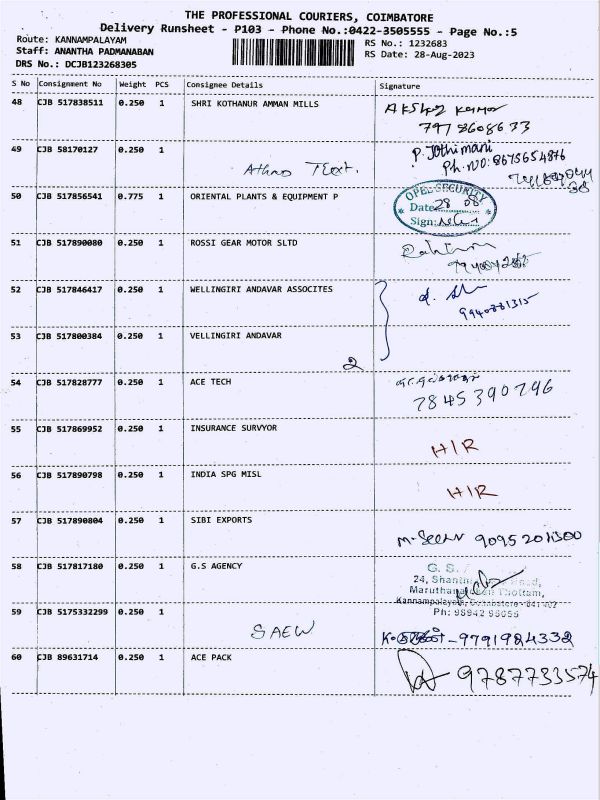 THE PROFESSIONAL COURIERS, COIMBATORE
Delivery Runsheet - P103 - Phone No.:0422-3505555 - Page No.:5
Route: KANNAMPALAYAM
Staff: ANANTHA PADMANABAN
DRS No.: DCJB123268305
RS No.: 1232683
RS Date: 28-Aug-2023
S No Consignment No Weight PCS Consignee Details Signature
48 CJB 517838511 0.250 1 SHRI KOTHANUR AMMAN MILLS
49 CJB 58170127 0.250 1 P. Jothimani
Ph.no: 8675654876
50 CJB 517856541 0.775 1 ORIENTAL PLANTS & EQUIPMENT P OPEL SECURITY
Date 28 08
Sign:
51 CJB 517890080 0.250 1 ROSSI GEAR MOTOR SLTD
52 CJB 517846417 0.250 1 WELLINGIRI ANDAVAR ASSOCITES
9940881315
53 CJB 517800384 0.250 1 VELLINGIRI ANDAVAR
2
54 CJB 517828777 0.250 1 ACE TECH
7845390796
55 CJB 517869952 0.250 1 INSURANCE SURVYOR
H/R
56 CJB 517890798 0.250 1 INDIA SPG MISL
H/R
57 CJB 517890804 0.250 1 SIBI EXPORTS
58 CJB 517817180 0.250 1 G.S AGENCY G. S.
24,
Kannampalayam, Coimbatore - 641 402
Ph: 98942 95055
59 CJB 5175332299 0.250 1
SAEW - 9791924332
60 CJB 89631714 0.250 1 ACE PACK
9787733574